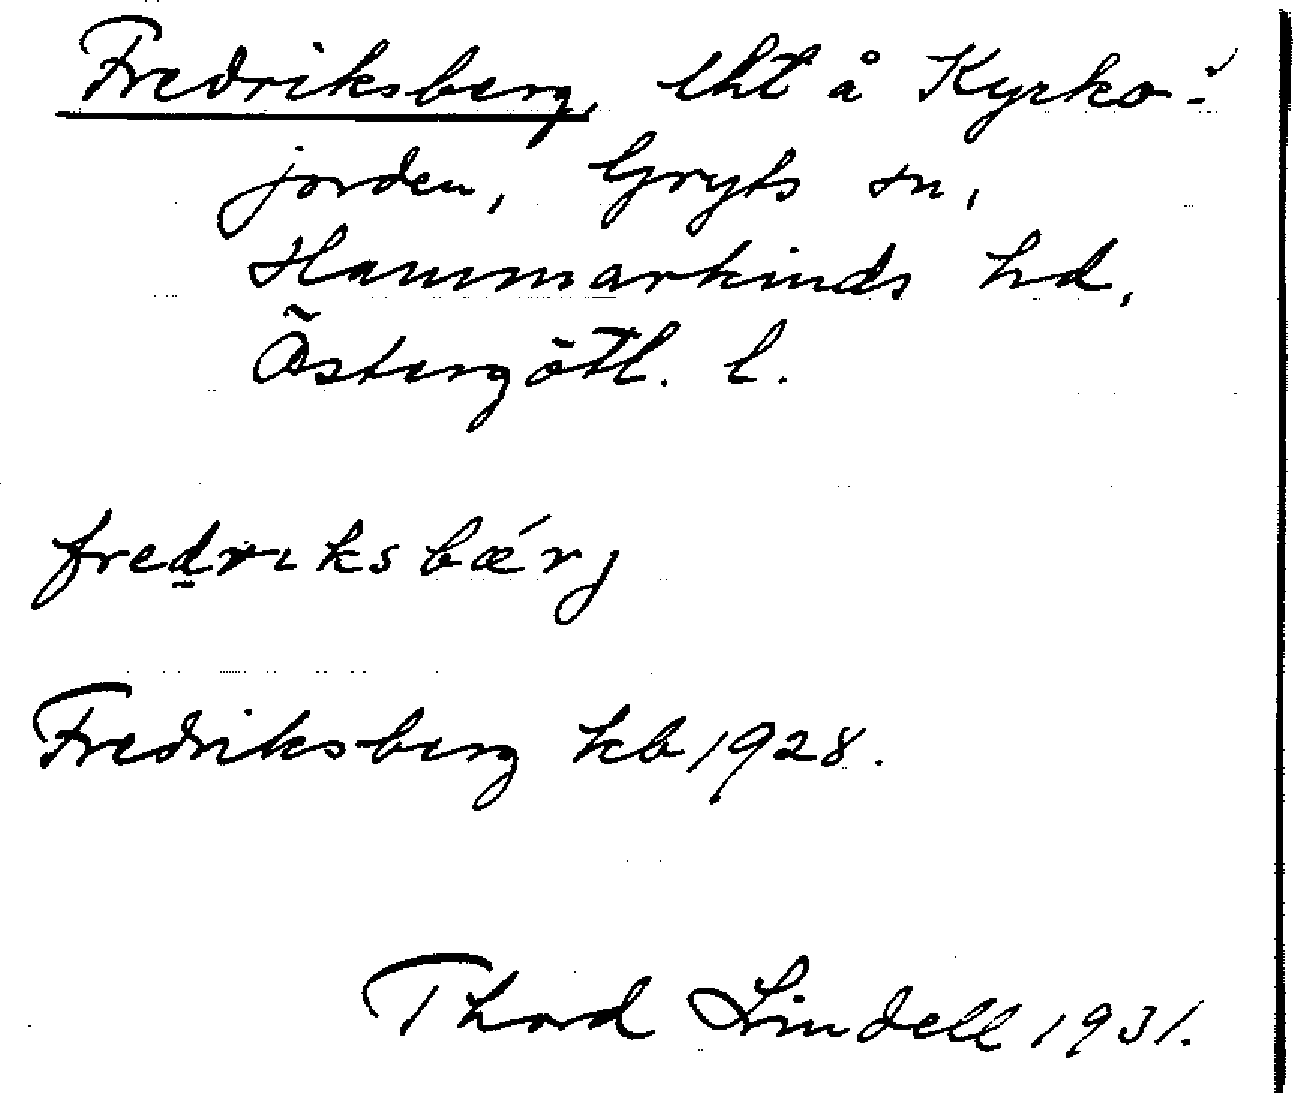 Fredriksberg, lht å Kyrko-
jorden, Gryts sn,
Hammarkinds hd,
Östergötl. l.
fredriksbǽrj
Fredriksberg kb 1928.
Thord Lindell 1931.